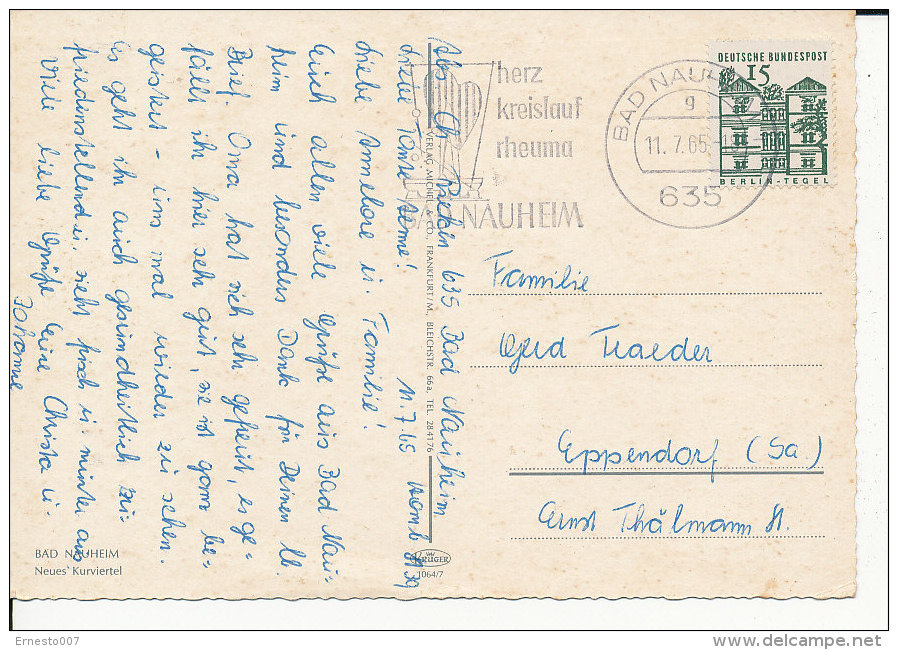 Abs. Ch. 635 Bad Nauheim
11.7.65
Liebe Tante Aenne!
Liebe Annelore u. Familie!
Euch allen viele Grüße aus Bad Nau-
heim und besonders Dank für Deinen lb.
Brief. Oma hat sich sehr gefreut, es ge-
fällt ihr hier sehr gut, sie ist ganz be-
geistert - uns mal wieder zu sehen.
Es geht ihr auch gesundheitlich zu-
friedenstellend u. sieht frisch u. munter aus
Viele liebe Grüße Eure Christa u.
Johanne
BAD NAUHEIM
Neues Kurviertel
VERLAG MICHEL & CO., FRANKFURT/M., BLEICHSTR. 66a, TEL. 284176
KRÜGER
1064/7
herz
kreislauf
rheuma
BAD NAUHEIM
BAD NAUHEIM
g
11.7.65
635
DEUTSCHE BUNDESPOST
15
BERLIN-TEGEL
Familie
Gerd Traeder
Eppendorf (Sa.)
Ernst Thälmann St.
Ernesto007
delcampe.net